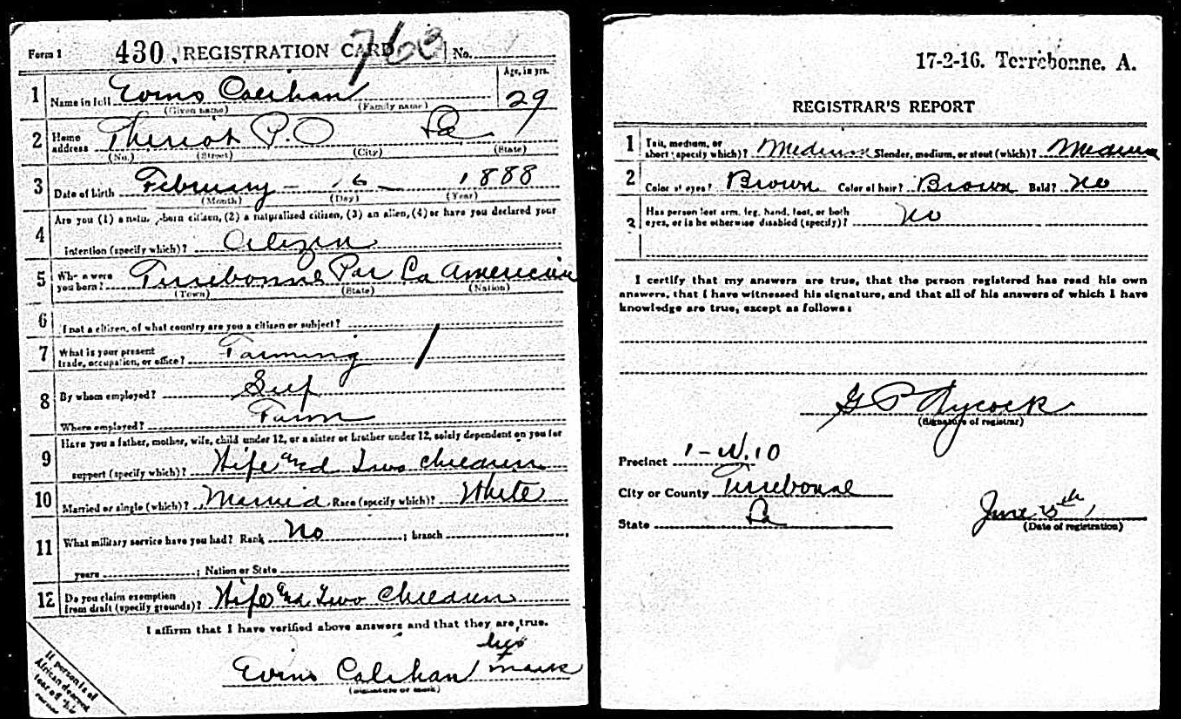 Form 1 430 REGISTRATION CARD 763 No.
1 Name in full Evins Calihan Age, in yrs. 29
(Given name) (Family name)
2 Home address Theriot P.O La
(No.) (Street) (City) (State)
3 Date of birth February - 16 - 1888
(Month) (Day) (Year)
4 Are you (1) a natu -born citizen, (2) a naturalized citizen, (3) an alien, (4) or have you declared your
intention (specify which)? Citizen
5 Where were you born? Terrebonne Par La American
(Town) (State) (Nation)
6 If not a citizen, of what country are you a citizen or subject?
7 What is your present trade, occupation, or office? Farming
8 By whom employed? Self
Where employed? Farm
9 Have you a father, mother, wife, child under 12, or a sister or brother under 12, solely dependent on you for
support (specify which)? Wife and Two children
10 Married or single (which)? Married Race (specify which)? White
11 What military service have you had? Rank No ; branch ;
years ; Nation or State
12 Do you claim exemption from draft (specify grounds)? Wife and Two Children
I affirm that I have verified above answers and that they are true.
his
Evins Calihan mark
(Signature or mark)
If person is of
African descent
tear off this
corner
17-2-16. Terrebonne. A.
REGISTRAR'S REPORT
1 Tall, medium, or short (specify which)? Medium Slender, medium, or stout (which)? Medium
2 Color of eyes? Brown Color of hair? Brown Bald? No
3 Has person lost arm, leg, hand, foot, or both
eyes, or is he otherwise disabled (specify)? No
I certify that my answers are true, that the person registered has read his own
answers, that I have witnessed his signature, and that all of his answers of which I have
knowledge are true, except as follows:
G P Aycock
(Signature of registrar)
Precinct 1-W.10
City or County Terrebonne
State La
June 5th,
(Date of registration)